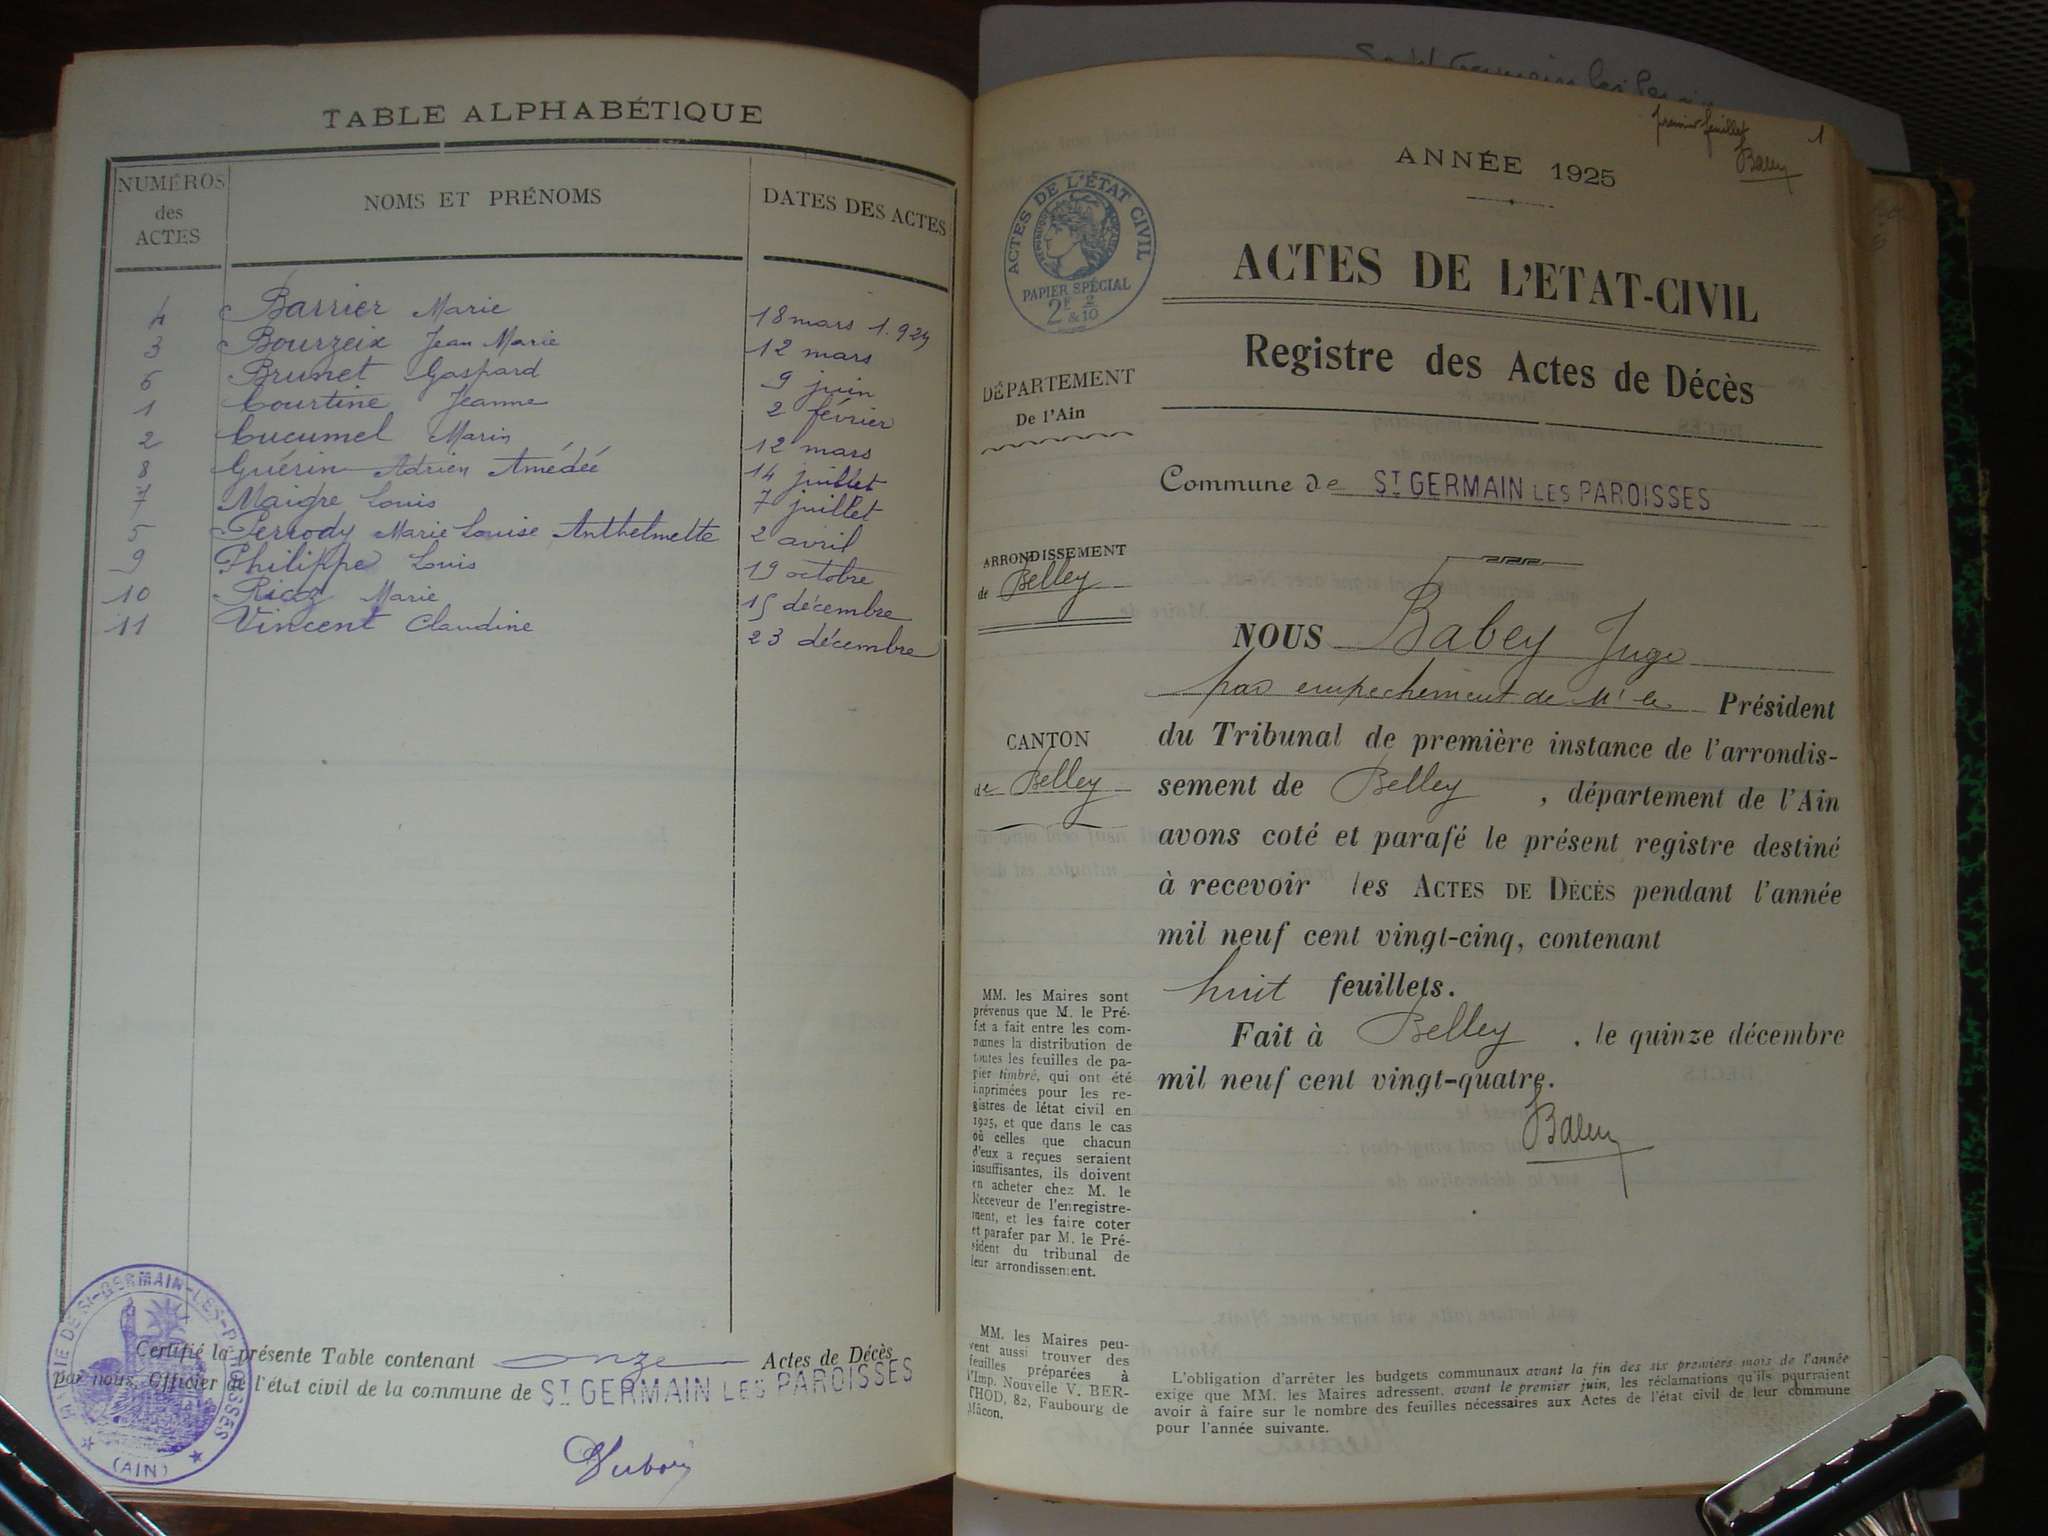 TABLE ALPHABÉTIQUE
NUMÉROS des ACTES
NOMS ET PRÉNOMS
DATES DES ACTES
4 Barrier Marie 18 mars 1.924
3 Bourzeix Jean Marie 12 mars
6 Brunet Gaspard 9 juin
1 Courtine Jeanne 2 février
2 Cucumel Marin 12 mars
8 Guérin Adrien Amédée 14 juillet
7 Maigre Louis 7 juillet
5 Perrody Marie Louise Anthelmette 2 avril
9 Philippe Louis 19 octobre
10 Ricoz Marie 15 décembre
11 Vincent Claudine 23 décembre
Certifié la présente Table contenant onze Actes de Décès
par nous, Officier de l'état civil de la commune de ST GERMAIN LES PAROISSES
MAIRIE DE ST-GERMAIN-LES-PAROISSES
(AIN)
Dubois
premier feuillet
1
ANNÉE 1925
ACTES DE L'ÉTAT CIVIL
PAPIER SPÉCIAL
2F & 2/10
ACTES DE L'ETAT-CIVIL
Registre des Actes de Décès
DÉPARTEMENT
De l'Ain
Commune de ST GERMAIN LES PAROISSES
ARRONDISSEMENT
de Belley
CANTON
de Belley
NOUS Babey Juge
par empechement de Mr le Président
du Tribunal de première instance de l'arrondis-
sement de Belley, département de l'Ain
avons coté et parafé le présent registre destiné
à recevoir les ACTES DE DÉCÈS pendant l'année
mil neuf cent vingt-cinq, contenant
huit feuillets.
Fait à Belley, le quinze décembre
mil neuf cent vingt-quatre.
Babey
MM. les Maires sont
prévenus que M. le Pré-
fet a fait entre les com-
munes la distribution de
toutes les feuilles de pa-
pier timbré, qui ont été
imprimées pour les re-
gistres de létat civil en
1925, et que dans le cas
où celles que chacun
d'eux a reçues seraient
insuffisantes, ils doivent
en acheter chez M. le
Receveur de l'enregistre-
ment, et les faire coter
et parafer par M. le Pré-
sident du tribunal de
leur arrondissement.
MM. les Maires peu-
vent aussi trouver des
feuilles préparées à
l'Imp. Nouvelle V. BER-
THOD, 82, Faubourg de
Mâcon.
L'obligation d'arrêter les budgets communaux avant la fin des six premiers mois de l'année
exige que MM. les Maires adressent, avant le premier juin, les réclamations qu'ils pourraient
avoir à faire sur le nombre des feuilles nécessaires aux Actes de l'état civil de leur commune
pour l'année suivante.